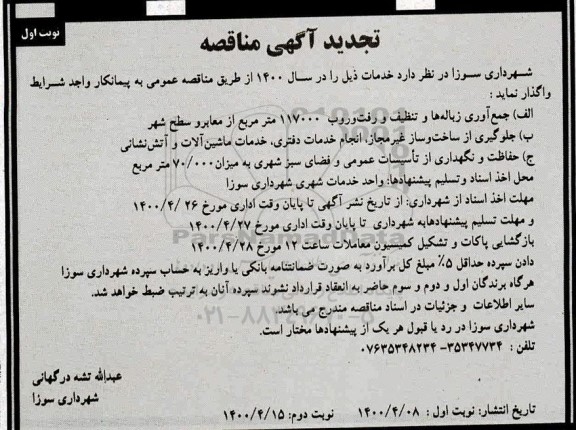 نوبت اول
تجدید آگهی مناقصه
شـهرداری سـوزا در نظر دارد خدمات ذیل را در سـال ۱۴۰۰ از طریق مناقصه عمومی به پیمانکار واجد شـرایط
واگذار نماید :
الف) جمع‌آوری زباله‌ها و تنظیف و رفت‌وروب ۱۱۷۰۰۰ متر مربع از معابرو سطح شهر
ب) جلوگیری از ساخت‌وساز غیرمجاز، انجام خدمات دفتری، خدمات ماشین‌آلات و آتش‌نشانی
ج) حفاظت و نگهداری از تأسیسات عمومی و فضای سبز شهری به میزان ۷۰/۰۰۰ متر مربع
محل اخذ اسناد وتسلیم پیشنهادها: واحد خدمات شهری شهرداری سوزا
مهلت اخذ اسناد از شهرداری: از تاریخ نشر آگهی تا پایان وقت اداری مورخ ۱۴۰۰/۴/ ۲۶
و مهلت تسلیم پیشنهادهابه شهرداری تا پایان وقت اداری مورخ ۱۴۰۰/۴/۲۷
بازگشایی پاکات و تشکیل کمیسیون معاملات ساعت ۱۲ مورخ ۱۴۰۰/۴/۲۸
دادن سپرده حداقل ۵٪ مبلغ کل برآورد به صورت ضمانتنامه بانکی یا واریز به حساب سپرده شهرداری سوزا
هرگاه برندگان اول و دوم و سوم حاضر به انعقاد قرارداد نشوند سپرده آنان به ترتیب ضبط خواهد شد.
سایر اطلاعات و جزئیات در اسناد مناقصه مندرج می باشد.
شهرداری سوزا در رد یا قبول هر یک از پیشنهادها مختار است.
تلفن : ۳۵۳۴۷۷۳۴- ۰۷۶۳۵۳۴۸۲۳۴
عبدالله تشه درگهانی
شهرداری سوزا
تاریخ انتشار: نوبت اول : ۱۴۰۰/۴/۰۸ نوبت دوم: ۱۴۰۰/۴/۱۵